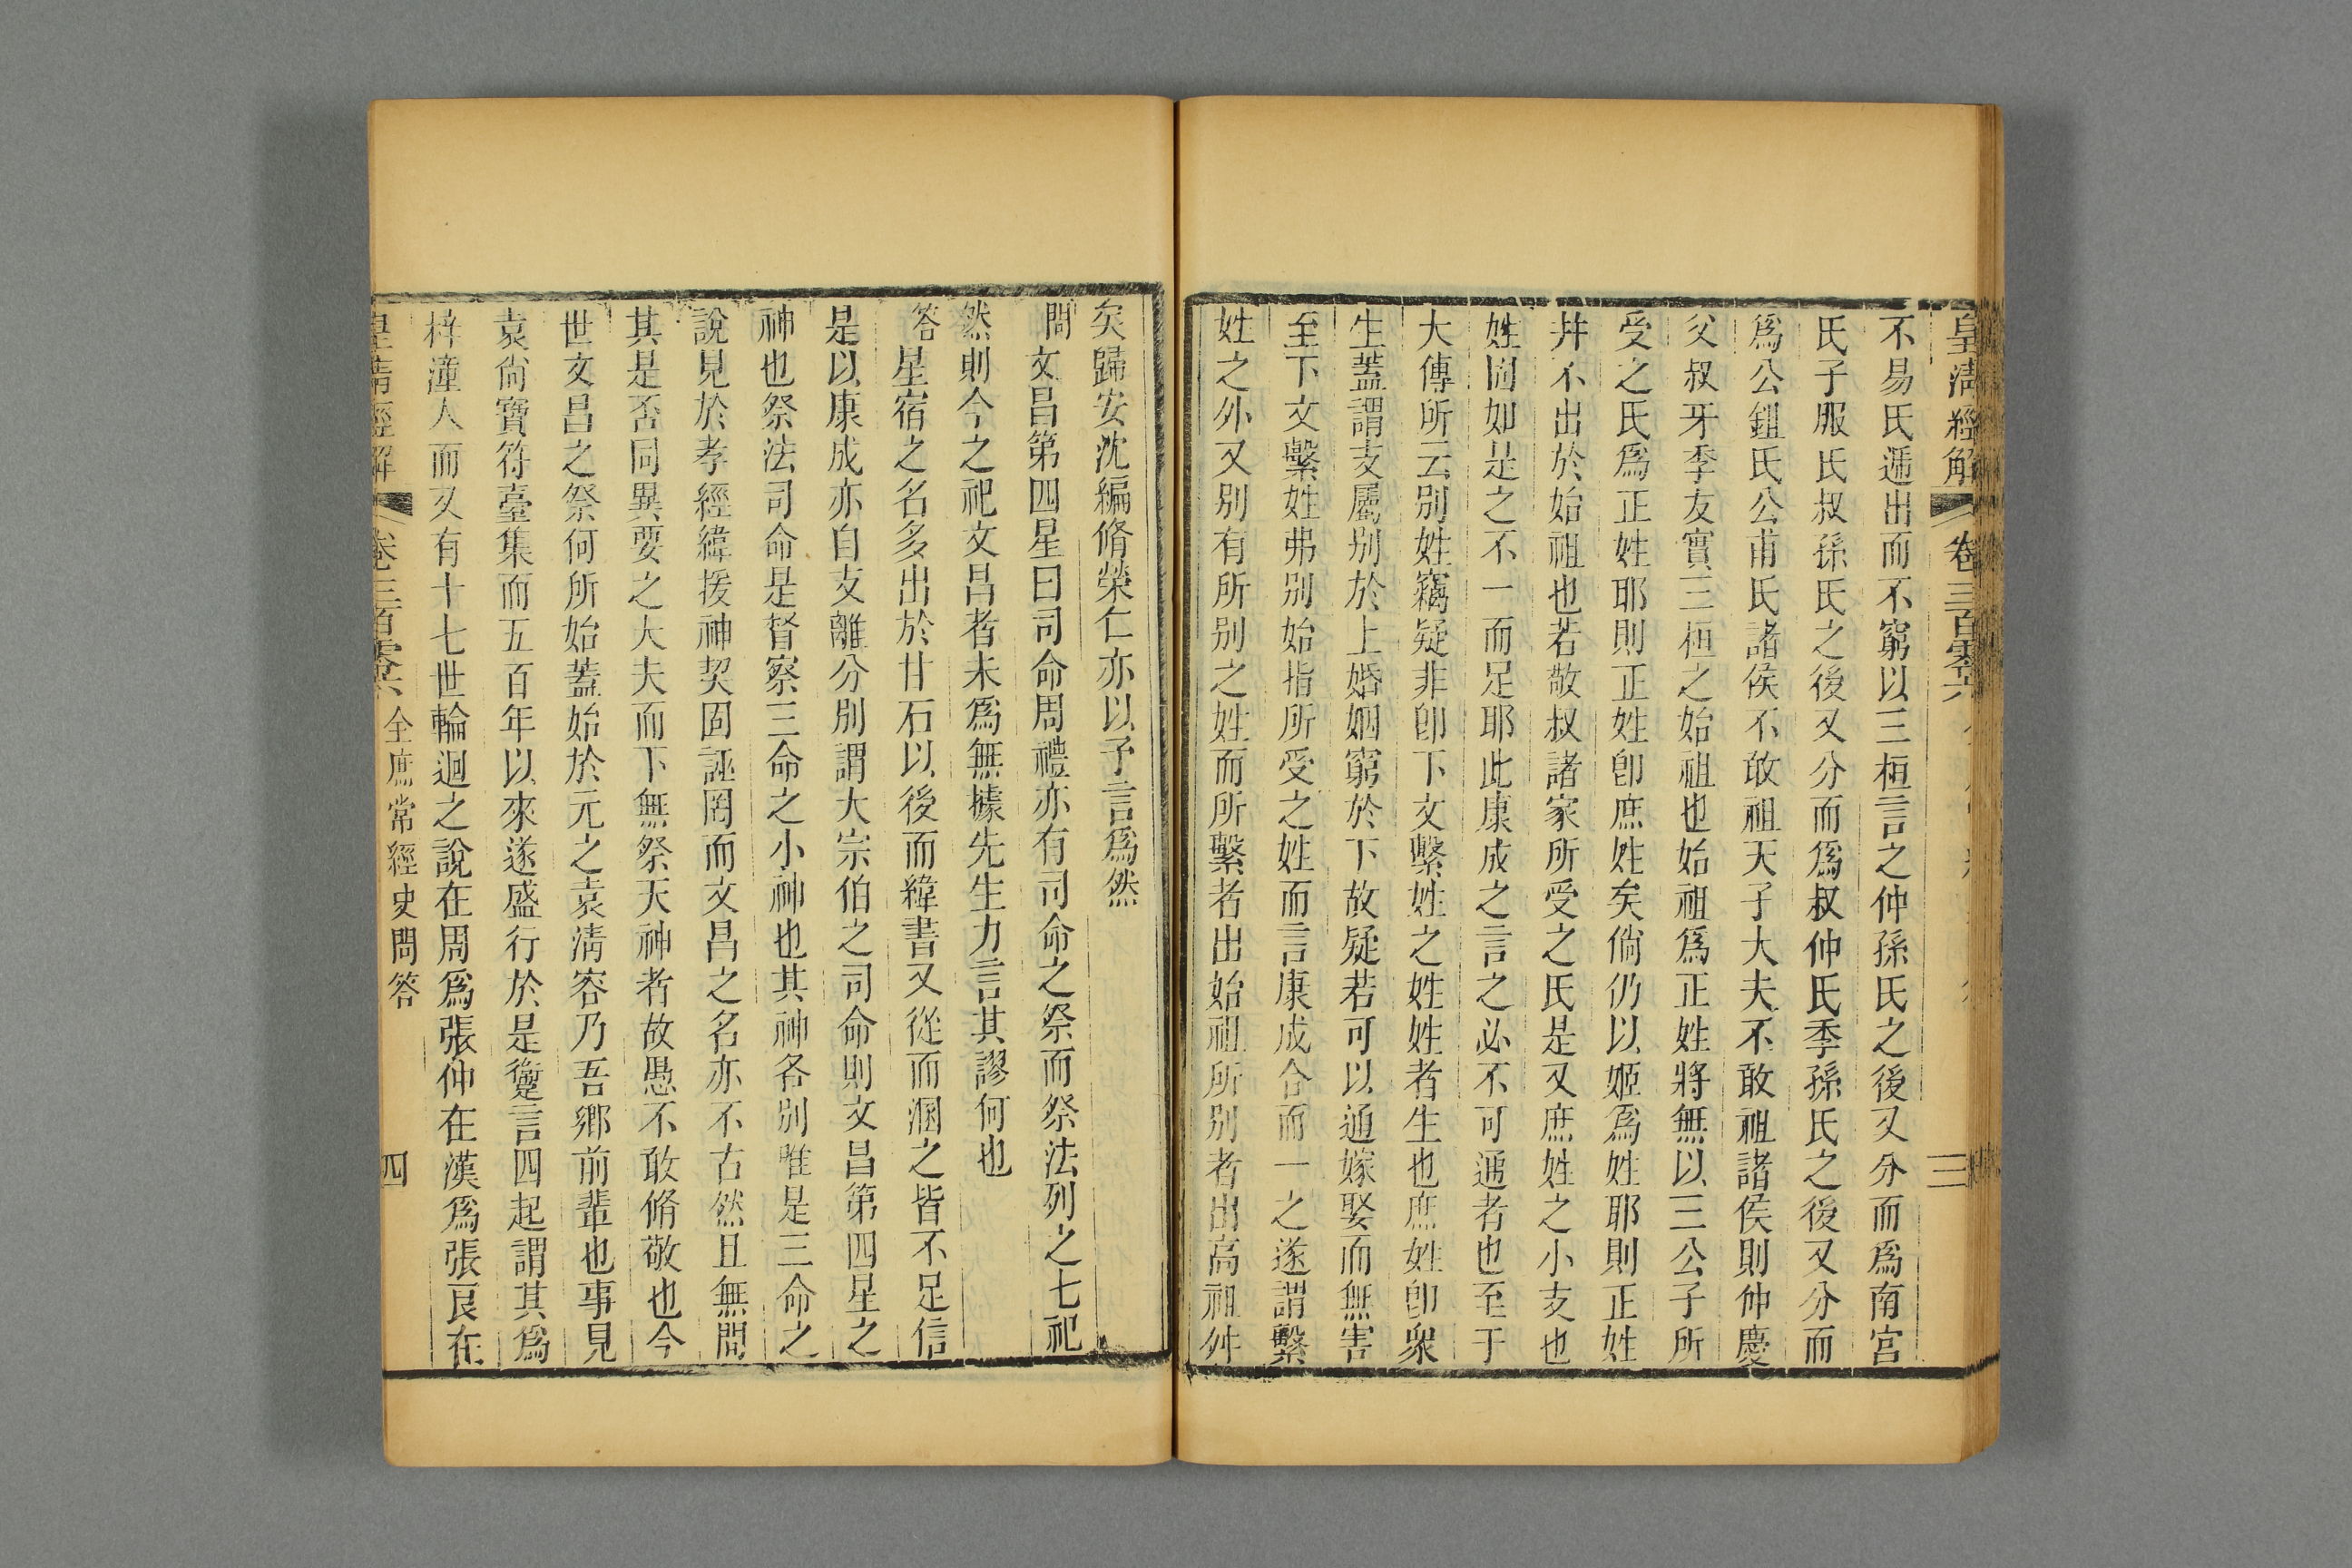 皇清經解 卷三百零六 三
不易氏遞出而不窮以三桓言之仲孫氏之後又分而爲南宮
氏子服氏叔孫氏之後又分而爲叔仲氏季孫氏之後又分而
爲公鉏氏公甫氏諸侯不敢祖天子大夫不敢祖諸侯則仲慶
父叔牙季友實三桓之始祖也始祖爲正姓將無以三公子所
受之氏爲正姓耶則正姓卽庶姓矣倘仍以姬爲姓耶則正姓
幷不出於始祖也若敬叔諸家所受之氏是又庶姓之小支也
姓固如是之不一而足耶此康成之言之必不可通者也至于
大傳所云別姓竊疑非卽下文繫姓之姓姓者生也庶姓卽衆
生蓋謂支屬別於上婚姻窮於下故疑若可以通嫁娶而無害
至下文繫姓弗別始指所受之姓而言康成合而一之遂謂繫
姓之外又別有所別之姓而所繫者出始祖所別者出高祖舛
矣歸安沈編脩榮仁亦以予言爲然
問文昌第四星曰司命周禮亦有司命之祭而祭法列之七祀
然則今之祀文昌者未爲無據先生力言其謬何也
答星宿之名多出於甘石以後而緯書又從而溷之皆不足信
是以康成亦自支離分別謂大宗伯之司命則文昌第四星之
神也祭法司命是督察三命之小神也其神各別唯是三命之
說見於孝經緯援神契固誣罔而文昌之名亦不古然且無問
其是否同異要之大夫而下無祭天神者故愚不敢脩敬也今
世文昌之祭何所始蓋始於元之袁淸容乃吾鄉前輩也事見
袁尙寶符臺集而五百年以來遂盛行於是躗言四起謂其爲
梓潼人而又有十七世輪迴之說在周爲張仲在漢爲張良在
皇清經解 卷三百零六 全庶常經史問答 四